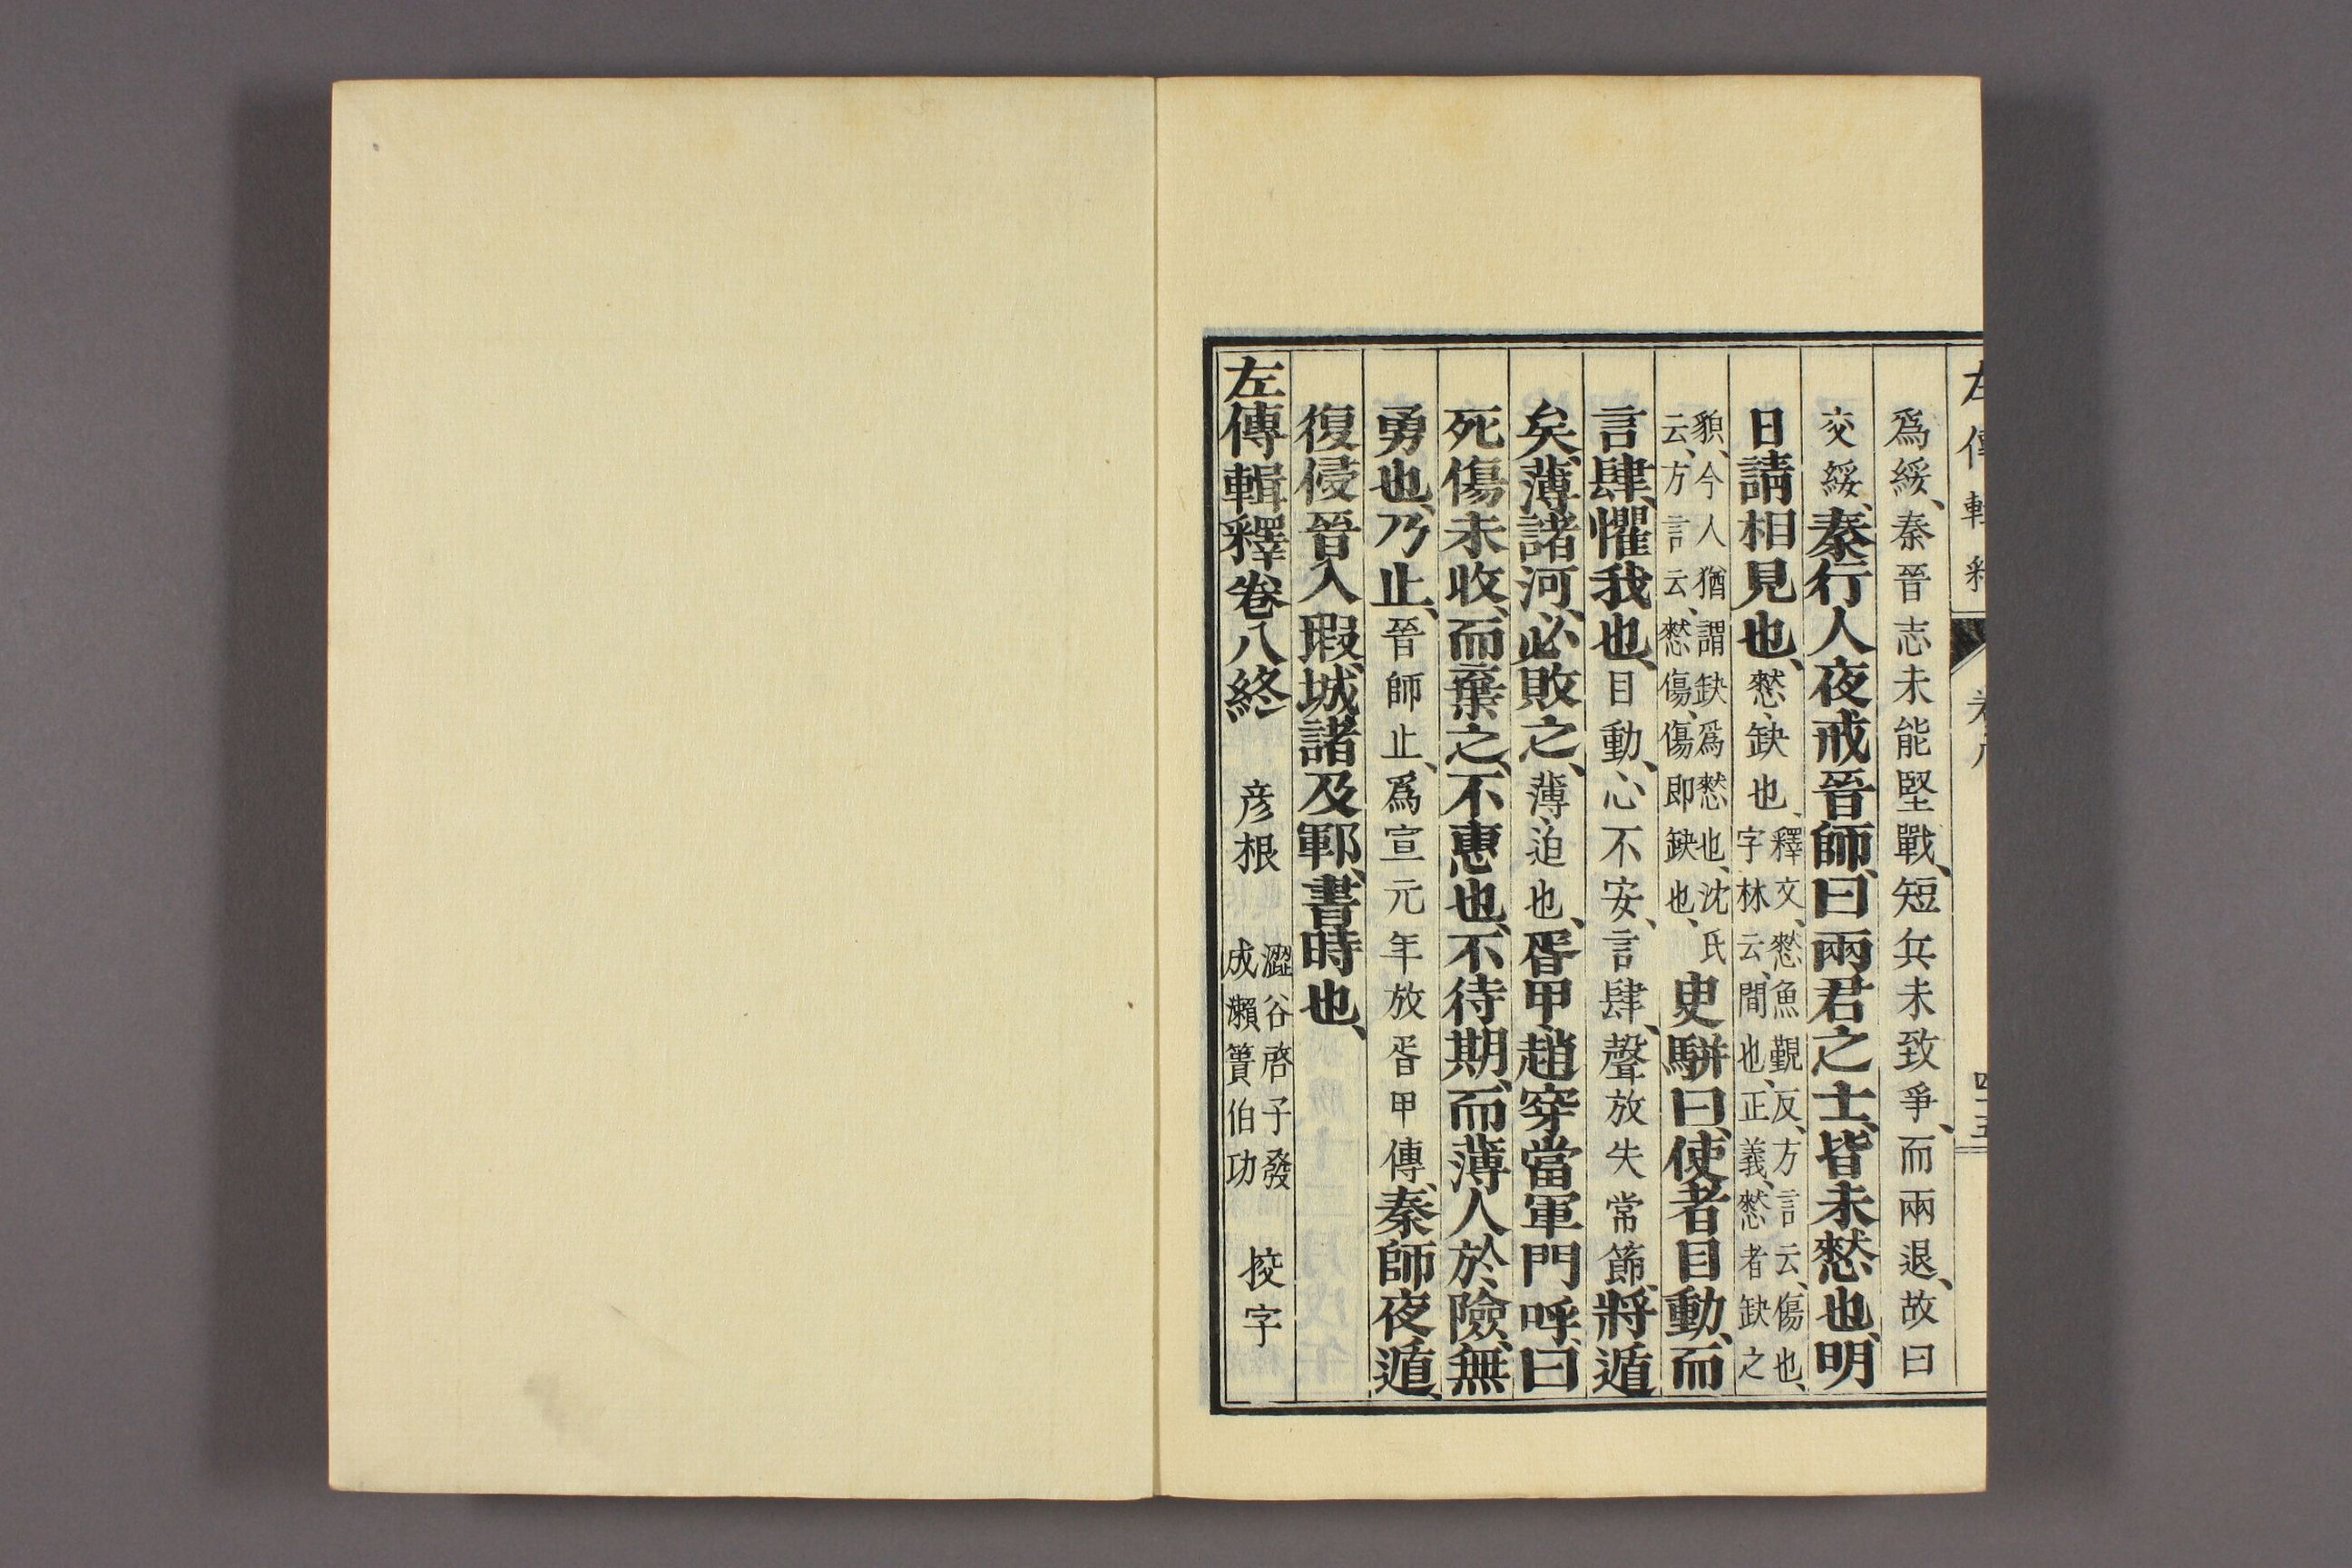 左傳輯釋 卷八 四十五
爲綏、秦晉志未能堅戰、短兵未致爭、而兩退、故曰
交綏、秦行人夜戒晉師、曰兩君之士、皆未憖也、明
日請相見也、憖、缺也、釋文、憖魚覲反、方言云、傷也、字林云、間也、正義、憖者缺之
貌、今人猶謂缺爲憖也、沈氏云、方言云、憖傷、傷即缺也、史駢曰、使者目動、而
言肆、懼我也、目動、心不安、言肆、聲放失常節、將遁
矣、薄諸河、必敗之、薄、迫也、胥甲、趙穿當軍門呼、曰
死傷未收、而棄之、不惠也、不待期、而薄人於險、無
勇也、乃止、晉師止、爲宣元年放胥甲傳、秦師夜遁、
復侵晉入瑕、城諸及鄆、書時也、
左傳輯釋卷八終 彦根 澀谷啓子發 成瀨簣伯功 挍字